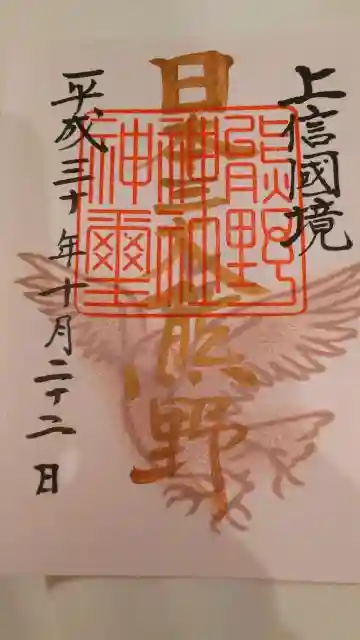 上信國境
日本三大熊野
熊野
神璽
平成三十年十月二十二日